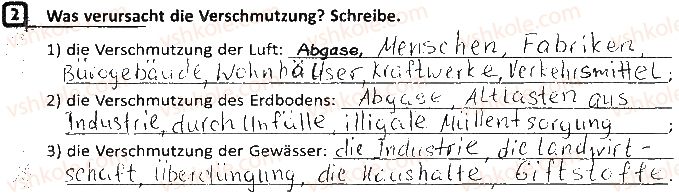 2 Was verursacht die Verschmutzung? Schreibe.
1) die Verschmutzung der Luft: Abgase, Menschen, Fabriken,
Bürogebäude, Wohnhäuser, Kraftwerke, Verkehrsmittel;
2) die Verschmutzung des Erdbodens: Abgase, Altlasten aus
Industrie, durch Unfälle, illigale Müllentsorgung;
3) die Verschmutzung der Gewässer: die Industrie, die Landwirt-
schaft, Überdüngung, die Haushalte, Giftstoffe.